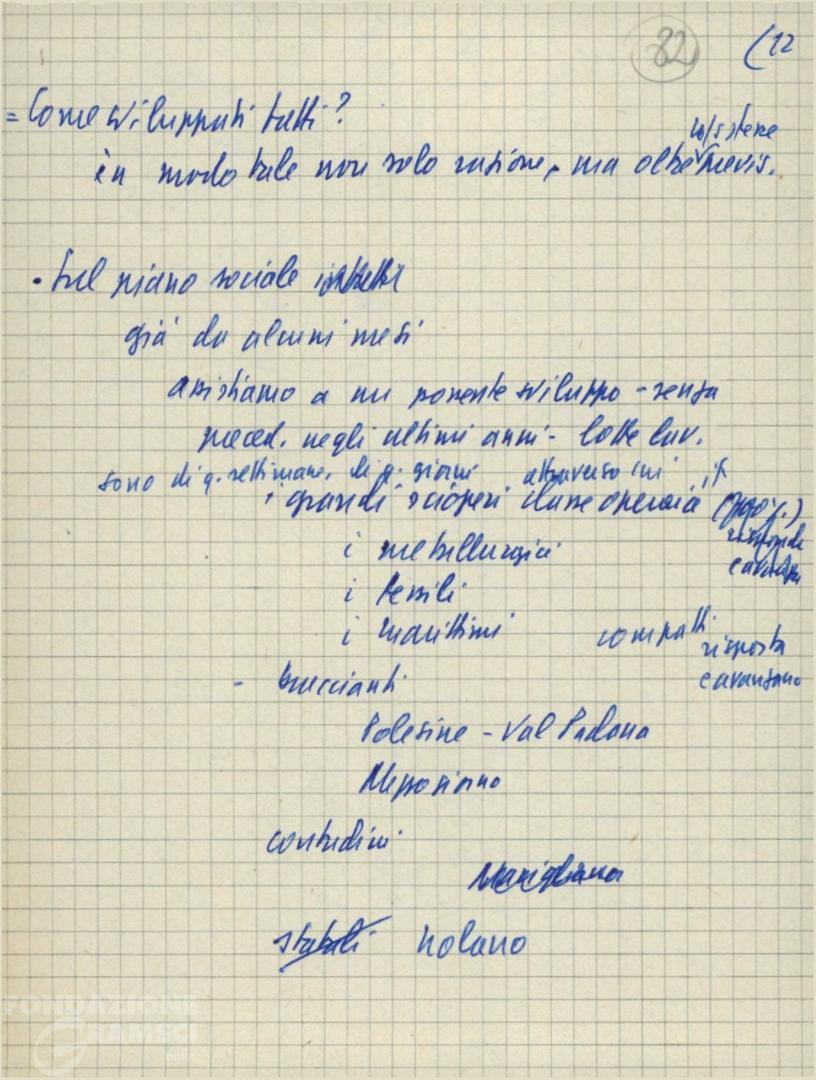 82 (12
= Come sviluppati fatti?
in modo tale non solo ragione, ma oltre previs.
. Sul piano sociale
già da alcuni mesi
assistiamo a un possente sviluppo - senza
preced. negli ultimi anni - lotte lav.
sono di q. settimane, di q. giorni attraverso cui
grandi scioperi classe operaia
i metallurgici
i tessili
i marittimi compatti
risposta
e avanzano
- braccianti
Polesine - Val Padana
Mezzogiorno
contadini
Marigliano
statali Nolano
FONDAZIONE
GRAMSCI